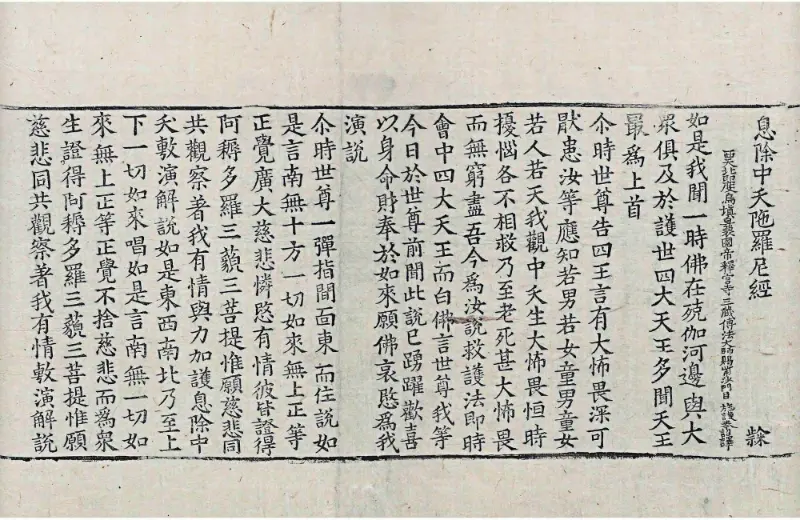 息除中夭陁羅尼經
西天北印度烏填曩國帝釋宮寺三藏傳法大師賜紫沙門臣 施護奉 詔譯
如是我聞一時佛在殑伽河邊與大
眾俱及於護世四大天王多聞天王
最爲上首
尒時世尊告四王言有大怖畏深可
猒患汝等應知若男若女童男童女
若人若天我觀中夭生大怖畏恒時
擾惱各不相救乃至老死甚大怖畏
而無窮盡吾今爲汝說救護法即時
會中四大天王而白佛言世尊我等
今日於世尊前聞此說已踴躍歡喜
以身命財奉於如來願佛哀愍爲我
演說
尒時世尊一彈指間面東而住說如
是言南無十方一切如來無上正等
正覺廣大慈悲憐愍有情彼皆證得
阿耨多羅三藐三菩提惟願慈悲同
共觀察著我有情與力加護息除中
夭敷演解說如是東西南北乃至上
下一切如來唱如是言南無一切如
來無上正等正覺不捨慈悲而爲眾
生證得阿耨多羅三藐三菩提惟願
慈悲同共觀察著我有情敷演解說